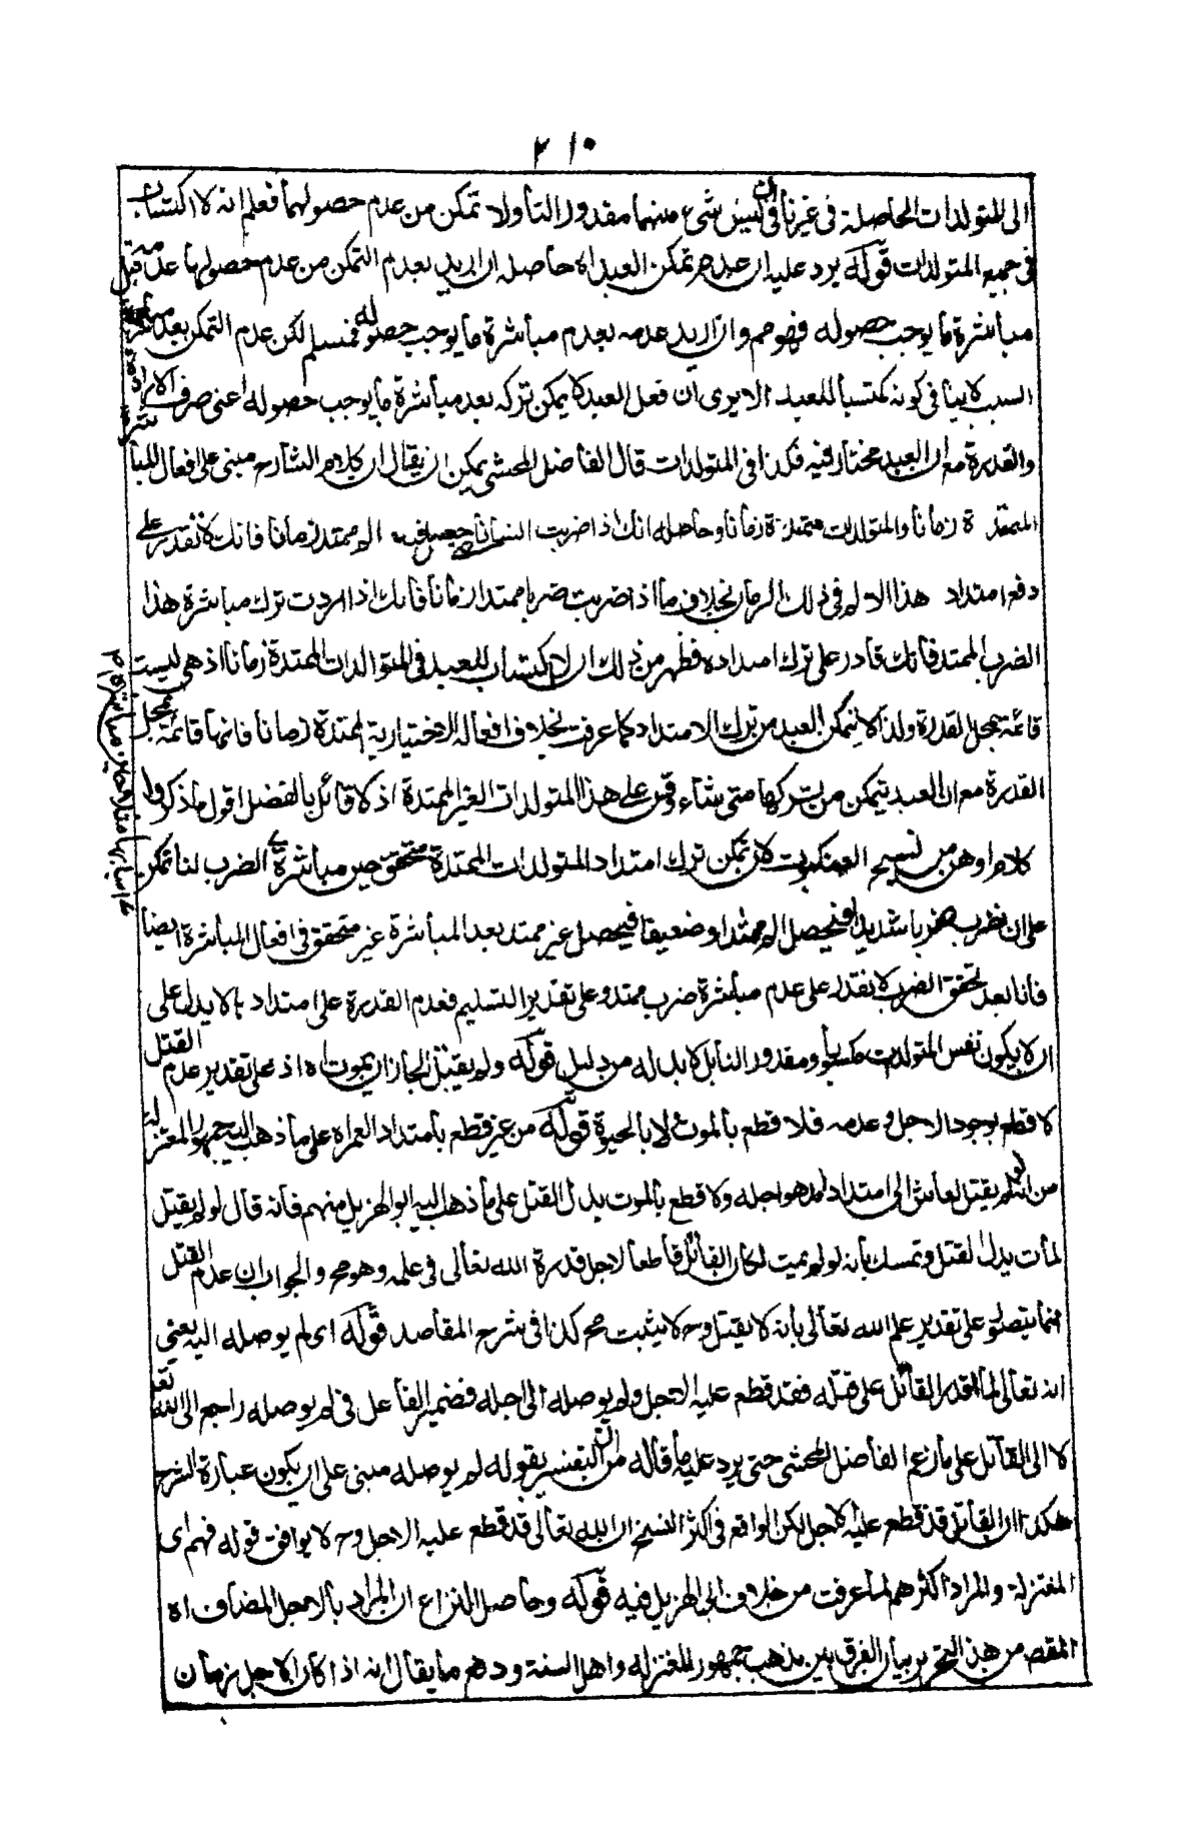 ٢١٠
الى المتولدات الحاصلة فى غيرنا فى ان ليس شىء منهما مقدور التا ولا تمكن من عدم حصولهما فعلم انه لا اكتساب
فى جميع المتولدات قوله يرد عليه ان عدم تمكن العبد اه حاصله ان اريد بعدم التمكن من عدم حصولها عدمه قبل
مباشرة ما يوجب حصوله فهو مم وان اريد عدمه بعدم مباشرة ما يوجب حصوله فمسلم لكن عدم التمكن بعد مباشرة
السبب لا ينافى كونه مكتسبا للعبد الا يرى ان فعل العبد لا يمكن تركه بعد مباشرة ما يوجب حصوله اعنى صرف الارادة
والقدرة مع ان العبد مختار فيه فكذا فى المتولدات قال الفاضل المحشى يمكن ان يقال ان كلام الشارح مبنى على افعال المباشرة
الممتدة زمانا والمتولدات ممتدة زمانا وحاصله انك اذا ضربت انسانا حصل فيه الم ممتد زمانا فانك لا تقدر على
دفع امتداد هذا الالم فى ذلك الزمان بخلاف ما اذا ضربت ضربا ممتدا زمانا فانك اذا اردت ترك مباشرة هذا
الضرب الممتد فانك قادر على ترك امتداده فظهر من ذلك ان لا اكتساب للعبد فى المتوالدات الممتدة زمانا اذ هى ليست
قائمة بمحل القدرة ولذا لا يتمكن العبد من ترك الامتداد كما عرفت بخلاف افعاله الاختيارية الممتدة زمانا فانها قائمة بمحل
القدرة مع ان العبد يتمكن من تركها متى شاء وقس على هذا المتولدات الغير الممتدة اذ لا قائل بالفصل اقول ما ذكروا
كلام اوهن من نسيج العنكبوت لان تمكن ترك امتداد المتولدات الممتدة متحقق حين مباشرة الضرب لنا تمكن
على ان نضرب ضربا شديدا فيحصل الم ممتد او ضعيفا فيحصل غير ممتد بعد المباشرة غير متحقق فى افعال المباشرة ايضا
فانا بعد تحقق الضرب لا نقدر على عدم مباشرة ضرب ممتد وعلى تقدير التسليم فعدم القدرة على امتدادها لا يدل على
ان لا يكون نفس المتولدات مكسوبا ومقدورا لنا بل لا بد له من دليل قوله ولو لم يقتل لجاز ان يموت اه اذ على تقدير عدم القتل
لا قطع بوجود الاجل وعدمه فلا قطع بالموت ولا بالحيوة قوله من غير قطع بامتداد العمر اه على ما ذهب اليه جمهور المعتزلة
من انه لو لم يقتل لعاش الى امتداد امد هو اجله ولا قطع بالموت بدل القتل على ما ذهب اليه ابو الهزيل منهم فانه قال لو لم يقتل
لمات بدل القتل وتمسك بانه لو لم يمت لكان القاتل قاطعا لاجل قدره الله تعالى فى علمه وهو مح والجواب ان عدم القتل
انما يتصور على تقدير علم الله تعالى بانه لا يقتل وح لا يثبت مح كذا فى شرح المقاصد قوله اى لم يوصله اليه يعنى
انه تعالى لما اقدر القاتل على قتله فقد قطع عليه الاجل ولم يوصله الى اجله فضمير الفاعل فى لم يوصله راجع الى الله تعالى
لا الى القاتل على ما زعم الفاضل المحشى حتى يرد عليه ما قاله من ان التفسير بقوله لم يوصله مبنى على ان يكون عبارة الشرح
هكذا ان القاتل قد قطع عليه الاجل لكن الواقع فى اكثر النسخ ان الله تعالى قد قطع عليه الاجل وح لا يوافق قوله فهم اى
المعتزلة والمراد اكثرهم لما عرفت من خلاف ابى الهزيل فيه قوله وحاصل النزاع ان المراد بالاجل المضاف اه
المقصد من هذا التحرير بيان الفرق بين مذهب جمهور المعتزله واهل السنة ودفع ما يقال انه اذا كان الاجل زمان